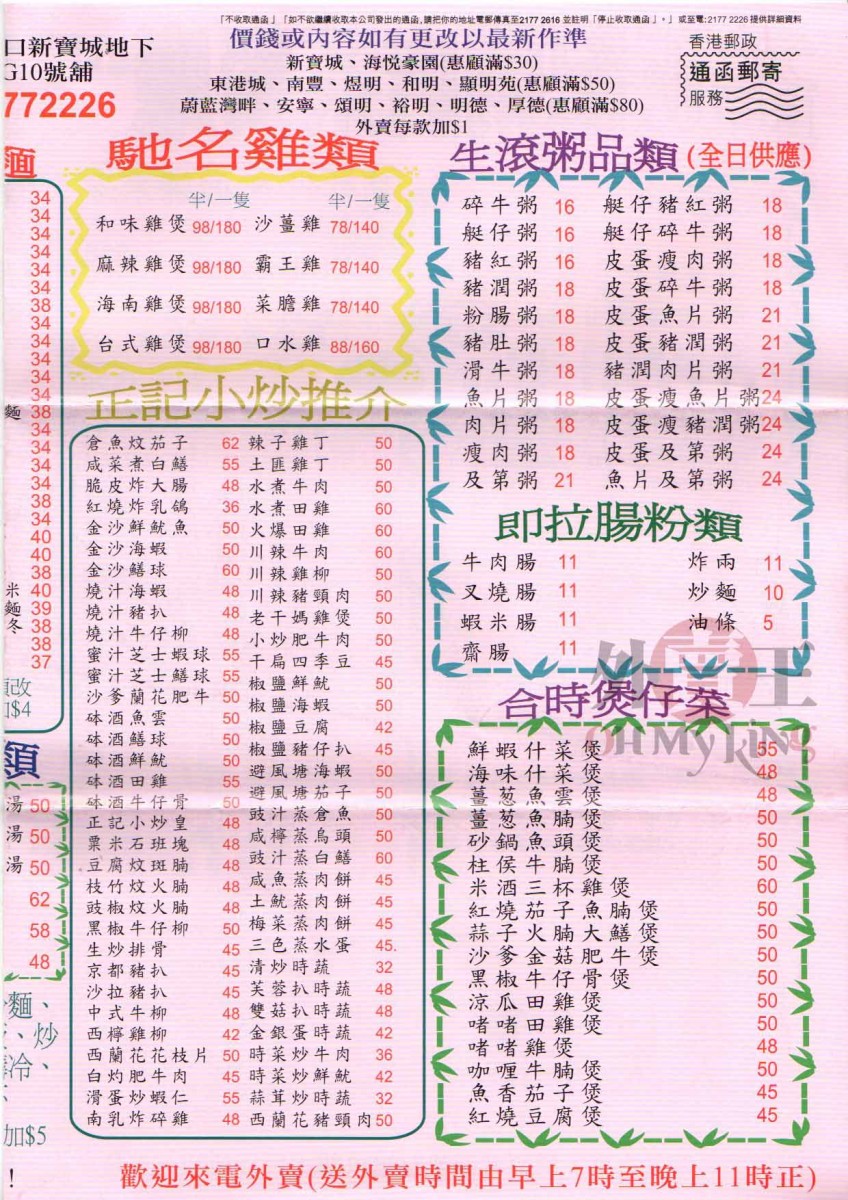 「不收取通函」「如不欲繼續收取本公司發出的通函,請把你的地址電郵傳真至2177 2616 並註明「停止收取通函」。」或至電:2177 2226 提供詳細資料
口新寶城地下
G10號舖
772226
價錢或內容如有更改以最新作準
新寶城、海悅豪園(惠顧滿$30)
東港城、南豐、煜明、和明、顯明苑(惠顧滿$50)
蔚藍灣畔、安寧、頌明、裕明、明德、厚德(惠顧滿$80)
外賣每款加$1
香港郵政
通函郵寄
服務
麵
34
34
34
34
34
34
38
34
34
34
34
34
麵 38
34
34
34
34
38
34
40
40
38
米 40
麵 39
冬 38
38
37
改
$4
類
湯 50
湯 50
湯 50
62
58
48
麵、
、炒
冷、
加$5
!
馳名雞類
半/一隻 半/一隻
和味雞煲 98/180 沙薑雞 78/140
麻辣雞煲 98/180 霸王雞 78/140
海南雞煲 98/180 菜膽雞 78/140
台式雞煲 98/180 口水雞 88/160
正記小炒推介
倉魚炆茄子 62 辣子雞丁 50
咸菜煮白鱔 55 土匪雞丁 50
脆皮炸大腸 48 水煮牛肉 50
紅燒炸乳鴿 36 水煮田雞 60
金沙鮮魷魚 50 火爆田雞 60
金沙海蝦 50 川辣牛肉 60
金沙鱔球 60 川辣雞柳 50
燒汁海蝦 48 川辣豬頸肉 50
燒汁豬扒 48 老干媽雞煲 50
燒汁牛仔柳 48 小炒肥牛肉 50
蜜汁芝士蝦球 55 干扁四季豆 45
蜜汁芝士鱔球 55 椒鹽鮮魷 50
沙爹蘭花肥牛 50 椒鹽海蝦 50
砵酒魚雲 50 椒鹽豆腐 42
砵酒鱔球 50 椒鹽豬仔扒 45
砵酒鮮魷 50 避風塘海蝦 50
砵酒田雞 55 避風塘茄子 50
砵酒牛仔骨 50 豉汁蒸倉魚 50
正記小炒皇 48 咸檸蒸烏頭 50
粟米石班塊 48 豉汁蒸白鱔 60
豆腐炆斑腩 48 咸魚蒸肉餅 45
枝竹炆火腩 48 土魷蒸肉餅 45
豉椒炆火腩 48 梅菜蒸肉餅 45
黑椒牛仔柳 50 三色蒸水蛋 45.
生炒排骨 45 清炒時蔬 32
京都豬扒 45 芙蓉扒時蔬 48
沙拉豬扒 45 雙菇扒時蔬 48
中式牛柳 48 金銀蛋時蔬 42
西檸雞柳 42 時菜炒牛肉 36
西蘭花花枝片 50 時菜炒鮮魷 42
白灼肥牛肉 45 蒜茸炒時蔬 32
滑蛋炒蝦仁 55 西蘭花豬頸肉 50
南乳炸碎雞 48
生滾粥品類(全日供應)
碎牛粥 16 艇仔豬紅粥 18
艇仔粥 16 艇仔碎牛粥 18
豬紅粥 16 皮蛋瘦肉粥 18
豬潤粥 18 皮蛋碎牛粥 18
粉腸粥 18 皮蛋魚片粥 21
豬肚粥 18 皮蛋豬潤粥 21
滑牛粥 18 豬潤肉片粥 21
魚片粥 18 皮蛋瘦魚片粥 24
肉片粥 18 皮蛋瘦豬潤粥 24
瘦肉粥 18 皮蛋及第粥 24
及第粥 21 魚片及第粥 24
即拉腸粉類
牛肉腸 11 炸兩 11
叉燒腸 11 炒麵 10
蝦米腸 11 油條 5
齋腸 11
外賣王
OH MY KINGS
合時煲仔菜
鮮蝦什菜煲 55
海味什菜煲 48
薑葱魚雲煲 48
薑葱魚腩煲 50
砂鍋魚頭煲 50
柱侯牛腩煲 50
米酒三杯雞煲 60
紅燒茄子魚腩煲 50
蒜子火腩大鱔煲 50
沙爹金菇肥牛煲 50
黑椒牛仔骨煲 50
涼瓜田雞煲 50
啫啫田雞煲 50
啫啫雞煲 48
咖喱牛腩煲 50
魚香茄子煲 45
紅燒豆腐煲 45
歡迎來電外賣(送外賣時間由早上7時至晚上11時正)